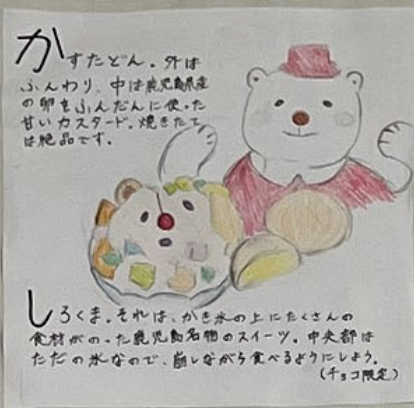 かすたどん。外は
ふんわり、中は鹿児島県産
の卵をふんだんに使った
甘いカスタード。焼きたて
は絶品です。
しろくま。それは、かき氷の上にたくさんの
食材がのった鹿児島名物のスイーツ。中央部は
ただの氷なので、崩しながら食べるようにしよう。
(チョコ限定)